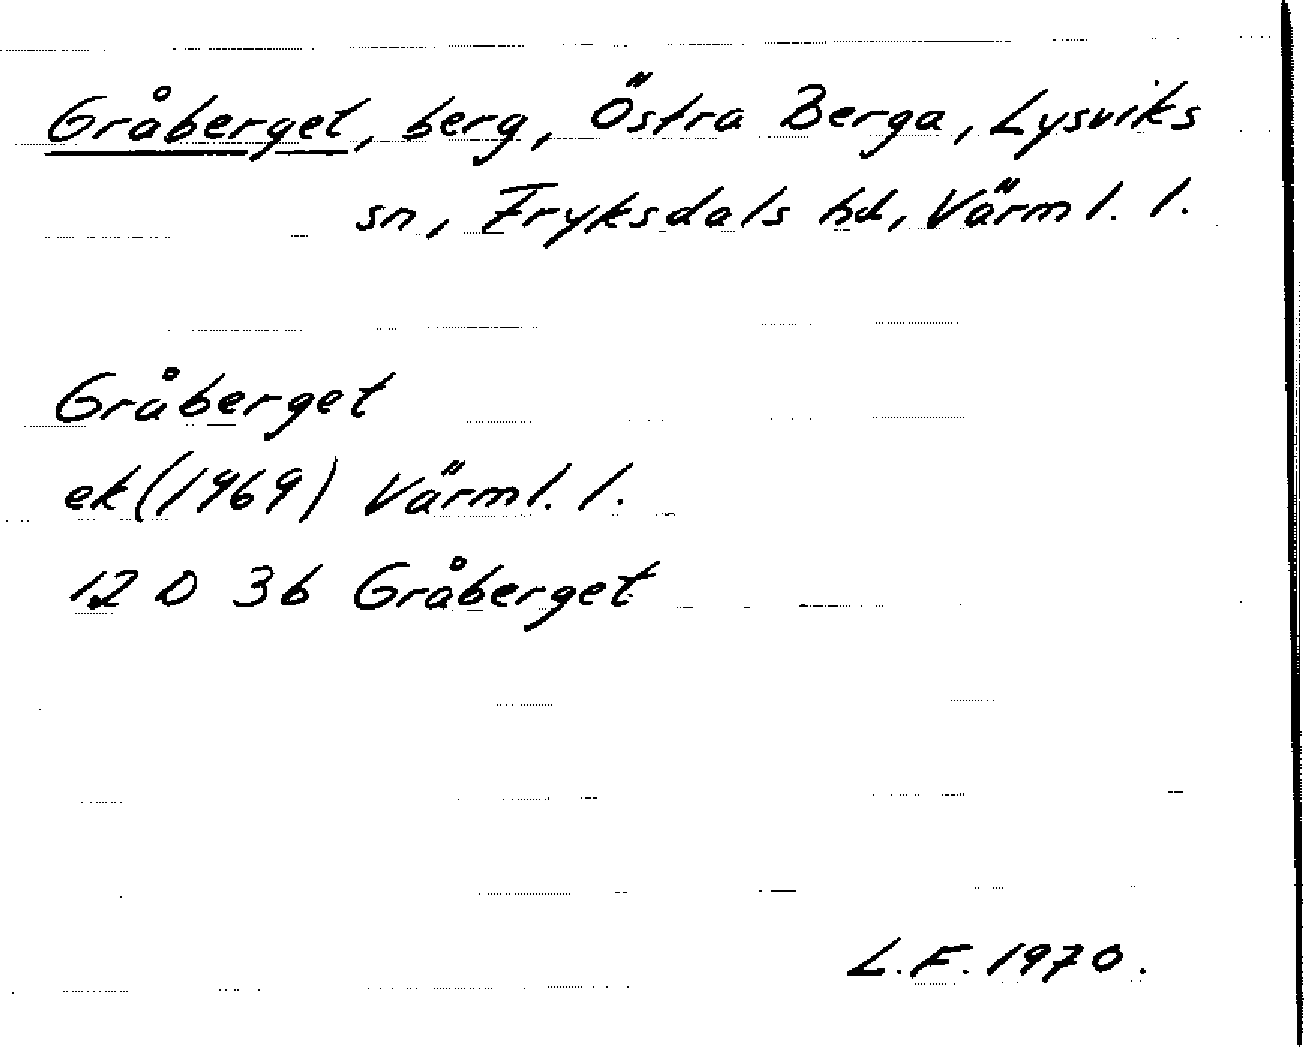 Gråberget, berg, Östra Berga, Lysviks
sn, Fryksdals hd, Värml. l.
Gråberget
ek (1969) Värml. l.
12 D 3b Gråberget
L.F. 1970.